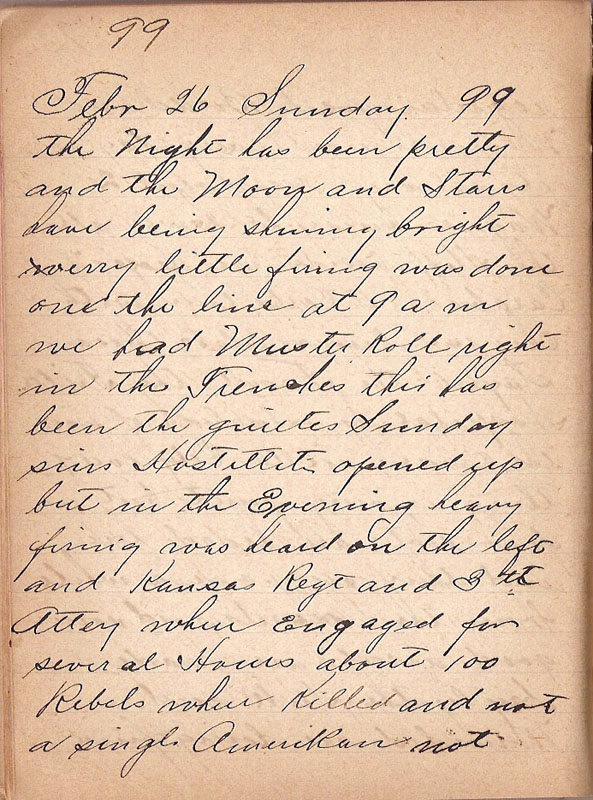 99
Febr 26 Sunday. 99
the Night has been pretty
and the Moon and Stars
have being shining bright
werry little firing was done
one the line at 9 a m
we had Muster Roll right
in the Trenches this has
been the quietes Sunday
sins Hostillets opened up
but in the Evening heavy
firing was heard on the left
and Kansas Regt and 3 rt
Attey wher Engaged for
several Hours about 100
Rebels wher Killed and not
a singls Amerikan not